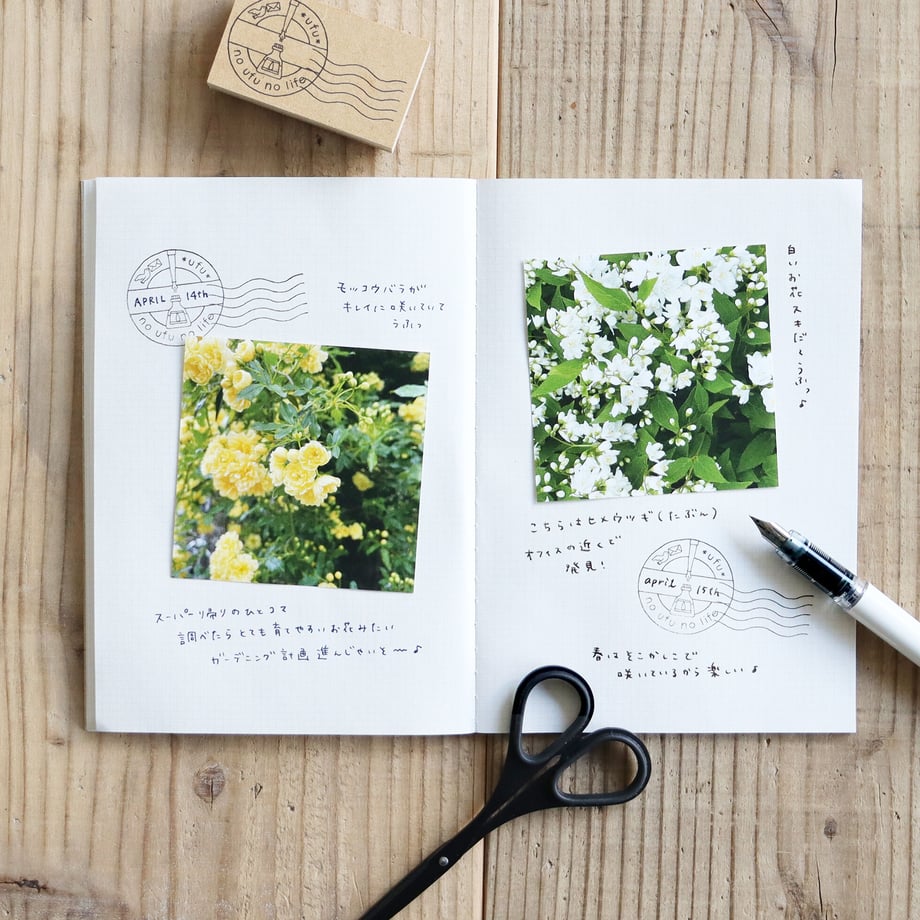 *ufu*
no ufu no life
*ufu*
APRIL 14th
no ufu no life
モッコウバラが
キレイに咲いていて
うふっ
スーパー帰りのひとコマ
調べたらとても育てやすいお花みたい
ガーデニング計画進んじゃいそ〜〜♪
白いお花スキだとうふっ♪
こちらはヒメウツギ(たぶん)
オフィスの近くで
発見!
*ufu*
april 15th
no ufu no life
春はそこかしこで
咲いているから楽しい♪